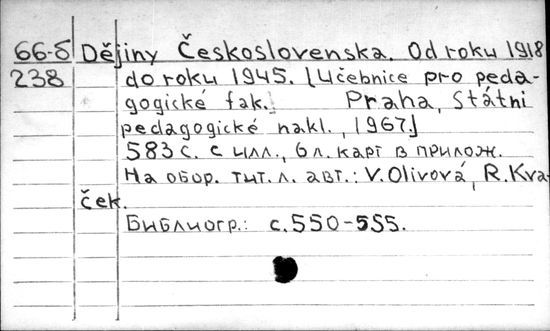 66-5 Dějiny Československa. Od roku 1918
238 do roku 1945. [Učebnice pro peda-
gogické fak. Praha, Státni
pedagogické nakl., 1967]
583 с. с илл., 6 л. карт в прилож.
На обор. тит. л. авт.: V. Olivová, R. Kva-
ček.
Библиогр.: с. 550-555.